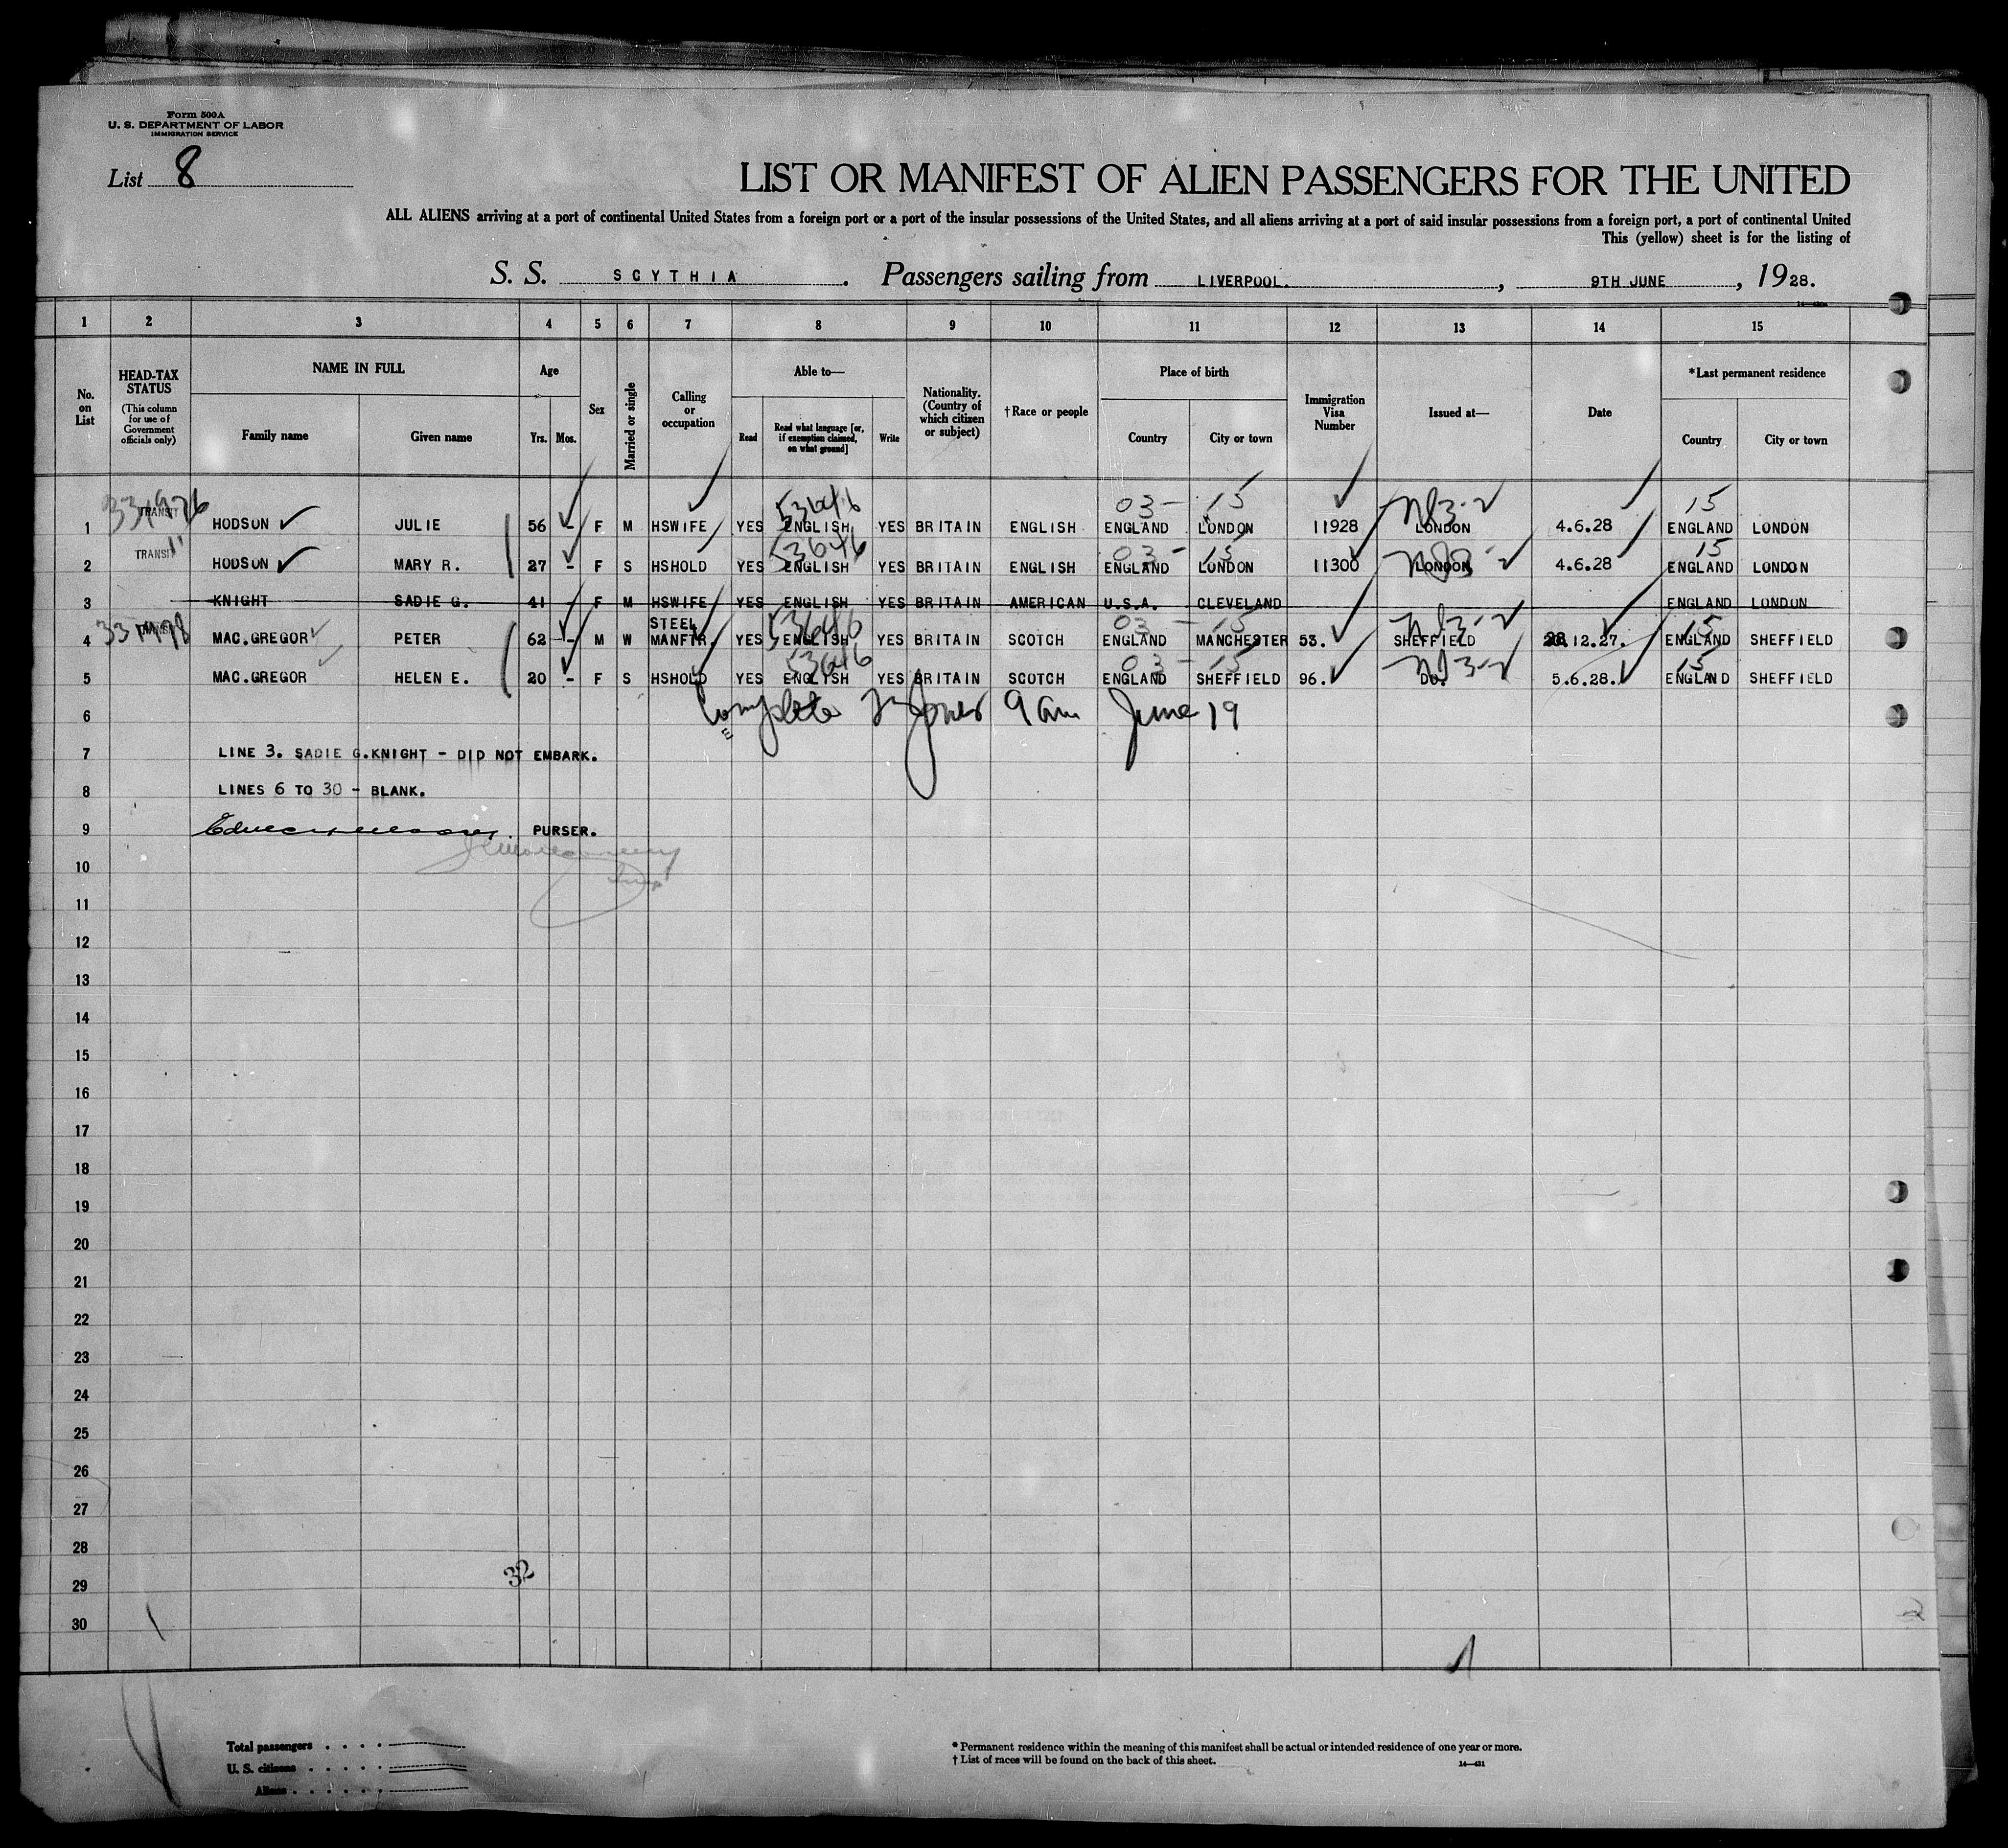 Form 500A
U. S. DEPARTMENT OF LABOR
IMMIGRATION SERVICE
List 8
LIST OR MANIFEST OF ALIEN PASSENGERS FOR THE UNITED
ALL ALIENS arriving at a port of continental United States from a foreign port or a port of the insular possessions of the United States, and all aliens arriving at a port of said insular possessions from a foreign port, a port of continental United
This (yellow) sheet is for the listing of
S. S. SCYTHIA. Passengers sailing from LIVERPOOL. , 9TH JUNE , 1928.
1 2 3 4 5 6 7 8 9 10 11 12 13 14 15
No. on List HEAD-TAX STATUS (This column for use of Government officials only) NAME IN FULL Family name Given name Age Yrs. Mos. Sex Married or single Calling or occupation Able to— Read Read what language [or, if exemption claimed, on what ground] Write Nationality. (Country of which citizen or subject) †Race or people Place of birth Country City or town Immigration Visa Number Issued at— Date *Last permanent residence Country City or town
331976 53646 03- 15 15
1 TRANSIT HODSON JULIE 56 - F M HSWIFE YES ENGLISH YES BRITAIN ENGLISH ENGLAND LONDON 11928 LONDON 4.6.28 ENGLAND LONDON
53646 03- 15 15
2 TRANSIT HODSON MARY R. 27 - F S HSHOLD YES ENGLISH YES BRITAIN ENGLISH ENGLAND LONDON 11300 LONDON 4.6.28 ENGLAND LONDON
3 KNIGHT SADIE G. 41 - F M HSWIFE YES ENGLISH YES BRITAIN AMERICAN U.S.A. CLEVELAND ENGLAND LONDON
53646 03 - 15 15
4 MAC.GREGOR PETER 62 - M W STEEL MANFTR. YES ENGLISH YES BRITAIN SCOTCH ENGLAND MANCHESTER 53. SHEFFIELD 28.12.27. ENGLAND SHEFFIELD
53646 03 - 15 15
5 MAC.GREGOR HELEN E. 20 - F S HSHOLD YES ENGLISH YES BRITAIN SCOTCH ENGLAND SHEFFIELD 96. DO. 5.6.28. ENGLAND SHEFFIELD
6 Complete Jones 9 am June 19
7 LINE 3. SADIE G.KNIGHT - DID NOT EMBARK.
8 LINES 6 TO 30 - BLANK.
9 PURSER.
10
11
12
13
14
15
16
17
18
19
20
21
22
23
24
25
26
27
28
32
29
30
Total passengers
U. S. citizens
Aliens
* Permanent residence within the meaning of this manifest shall be actual or intended residence of one year or more.
† List of races will be found on the back of this sheet.
14—431